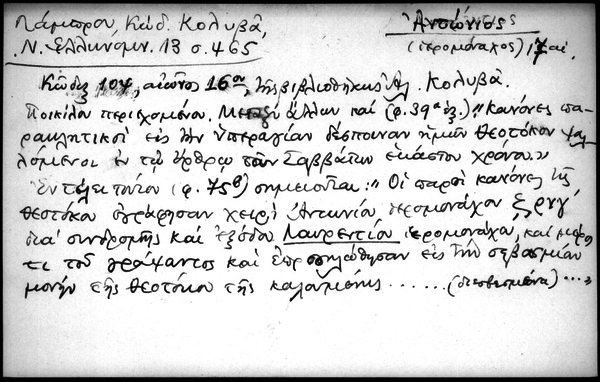 Λάμπρου, Κώδ. Κολυβᾶ,
Ν. Ἑλληνομν. 13 σ. 465
Ἀντώνιος
(ἱερομόναχος)
Κῶδιξ 104, αἰῶνος 16ου, τῆς βιβλιοθήκης Ἀλ. Κολυβᾶ.
Ποικίλου περιεχομένου. Μεταξὺ ἄλλων καὶ (φ. 39α ἑξ.) "Κανόνες πα-
ρακλητικοὶ εἰς τὴν ὑπεραγίαν δέσποιναν ἡμῶν Θεοτόκον ψαλ-
λόμενοι ἐν τῷ ὄρθρῳ τῶν Σαββάτων ἑκάστου χρόνου."
Ἐν τέλει τούτου (φ. 75β) σημειοῦται: "Οἱ παρὸν κανόνες τῆς
Θεοτόκου ἐγράφησαν χειρὶ Ἀντωνίου ἱερομονάχου
διὰ συνδρομῆς καὶ ἐξόδου Λαυρεντίου ἱερομονάχου, καὶ
τοῦ γράψαντος καὶ εἰς τὴν σεβασμίαν
μονὴν τῆς Θεοτόκου τῆς ...... (διεσβεσμένα) ...."